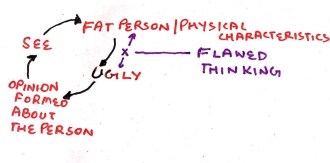 FAT PERSON/PHYSICAL
CHARACTERISTICS
SEE
X
FLAWED
THINKING
UGILY
OPINION
FORMED
ABOUT
THE PERSON